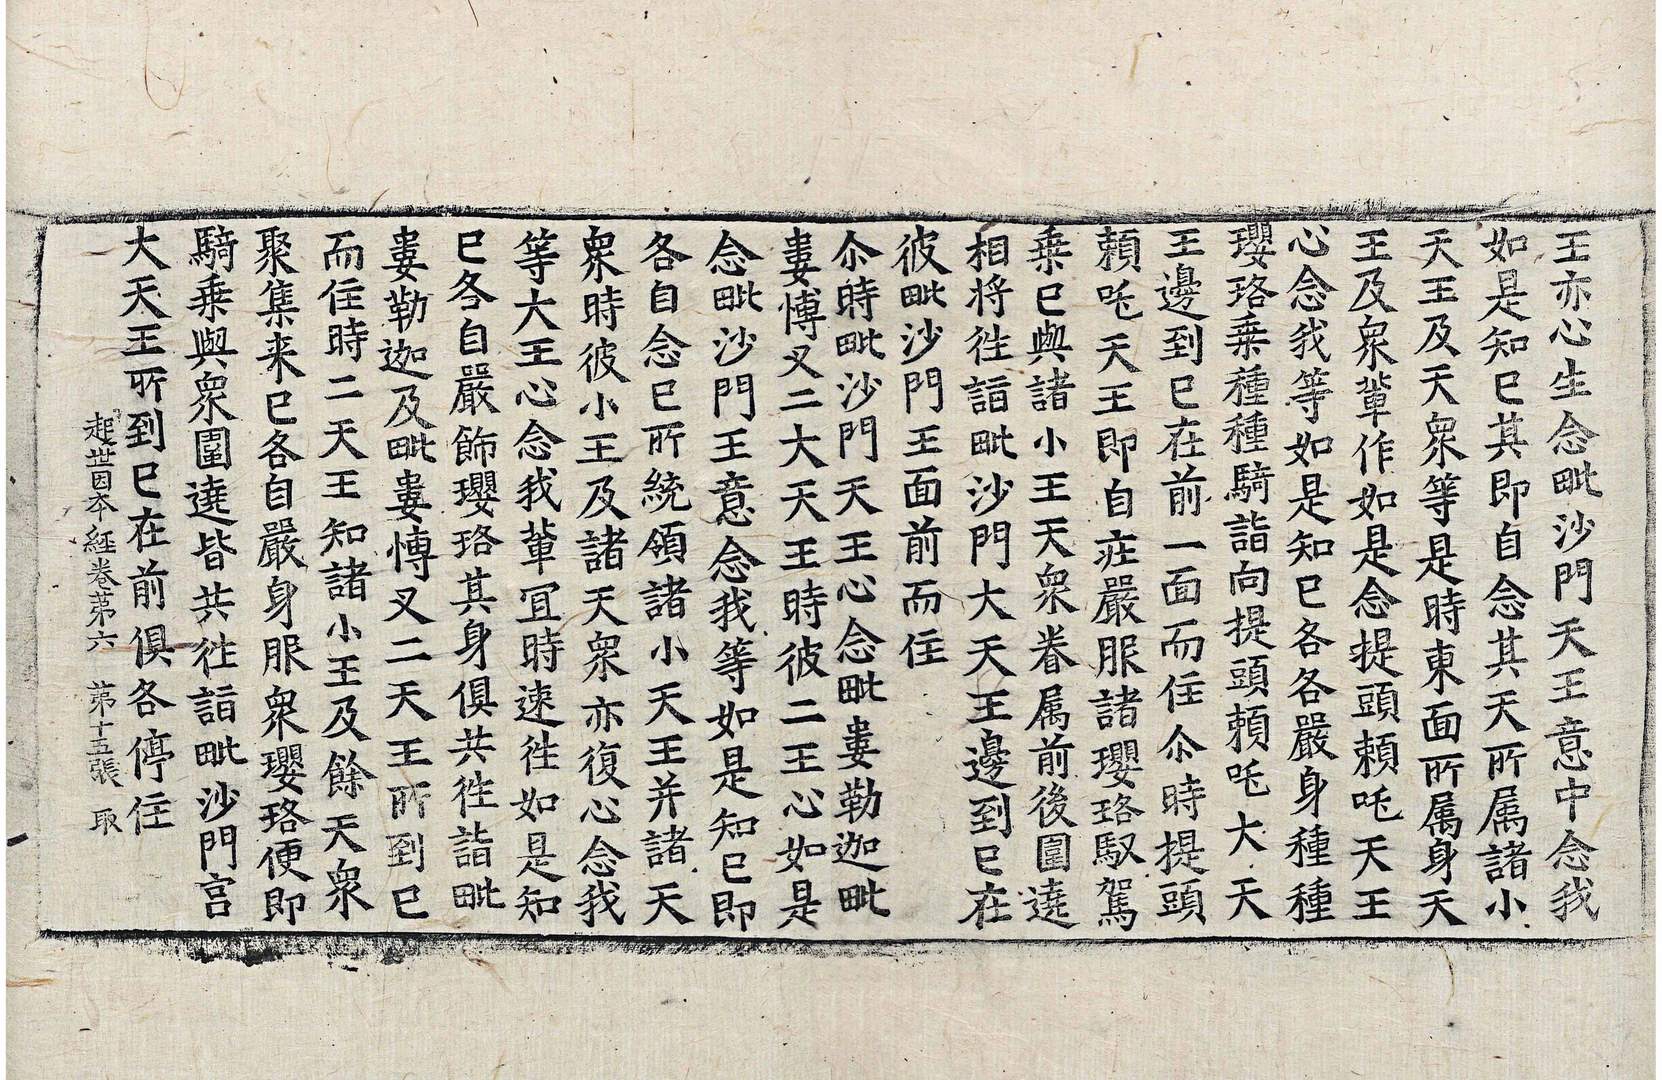 王亦心生念毗沙門天王意中念我
如是知已其即自念其天所属諸小
天王及天衆等是時東面所属身天
王及衆軰作如是念提頭頼吒天王
心念我等如是知已各各嚴身種種
瓔珞乗種種騎詣向提頭頼吒大天
王邊到已在前一面而住尒時提頭
頼吒天王即自庄嚴服諸瓔珞馭駕
乗已與諸小王天衆眷属前後圍遶
相将徃詣毗沙門大天王邊到已在
彼毗沙門王面前而住
尒時毗沙門天王心念毗婁勒迦毗
婁愽叉二大天王時彼二王心如是
念毗沙門王意念我等如是知已即
各自念已所統領諸小天王并諸天
衆時彼小王及諸天衆亦復心念我
等大王心念我軰冝時速徃如是知
已各自嚴飾瓔珞其身俱共徃詣毗
婁勒迦及毗婁愽叉二天王所到已
而住時二天王知諸小王及餘天衆
聚集来已各自嚴身服衆瓔珞便即
騎乗與衆圍遶皆共徃詣毗沙門宫
大天王所到已在前俱各停住
起世因本經卷苐六 苐十五張 取